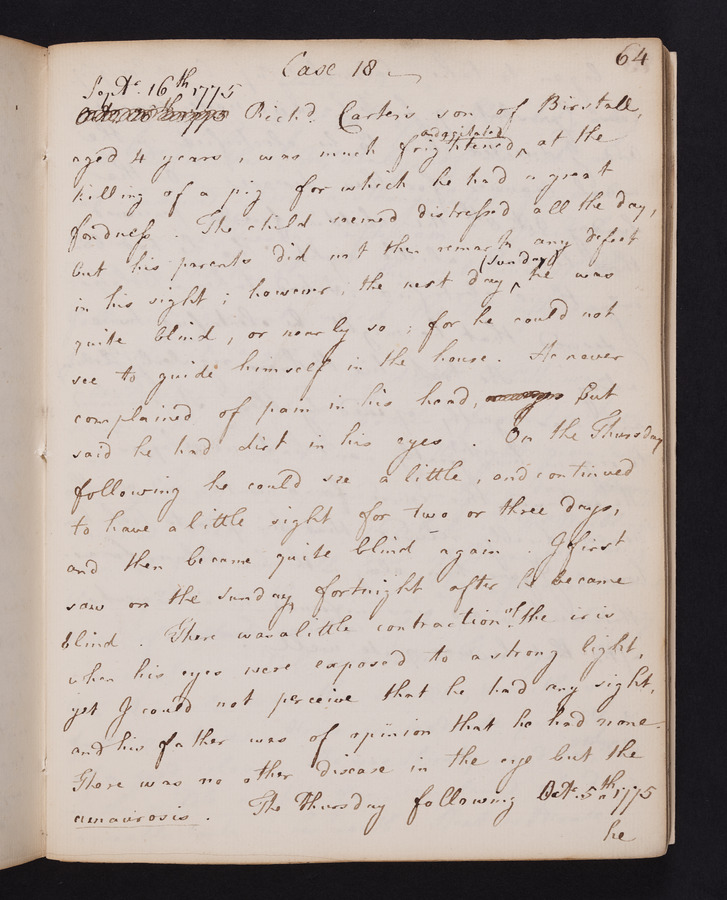 64
Case 18
Sept. 16th 1775
Richd. Carter's son of Birstall,
aged 4 years, was much frightened, and agitated at the
killing of a pig for which he had a great
fondness. The child seemed distressed all the day,
but his parents did not then remark any defect
in his sight; however, the next day (Sunday) he was
quite blind, or nearly so; for he could not
see to guide himself in the house. He never
complained of pain in his head, but
said he had dirt in his eyes. On the Thursday
following he could see a little, and continued
to have a little sight for two or three days,
and then became quite blind again. I first
saw on the Sunday fortnight after he became
blind. There was a little contraction of the iris
when his eyes were exposed to a strong light,
yet I could not perceive that he had any sight,
and his father was of opinion that he had none.
There was no other disease in the eye but the
amaurosis. The Thursday following Oct. 5th 1775
he